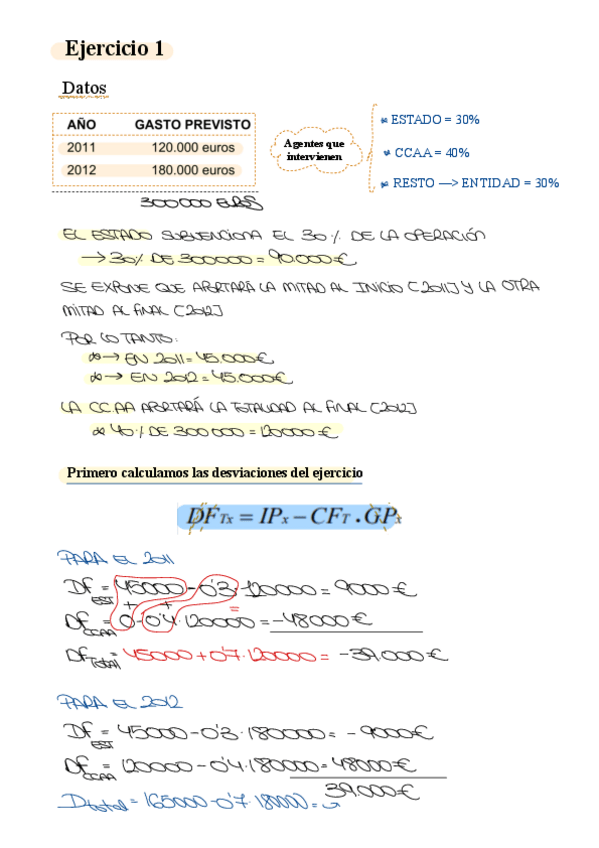 Ejercicio 1
Datos
AÑO GASTO PREVISTO
2011 120.000 euros
2012 180.000 euros
300000 EUROS
Agentes que
intervienen
* ESTADO = 30%
* CCAA = 40%
* RESTO —> ENTIDAD = 30%
EL ESTADO SUBVENCIONA EL 30% DE LA OPERACIÓN
→ 30% DE 300000 = 90.000€
SE EXPONE QUE APORTARÁ LA MITAD AL INICIO [2011] Y LA OTRA
MITAD AL FINAL [2012]
POR LO TANTO:
* → EN 2011 = 45.000€
* → EN 2012 = 45.000€
LA CC.AA APORTARÁ LA TOTALIDAD AL FINAL [2012]
* 40% DE 300000 = 120000€
Primero calculamos las desviaciones del ejercicio
DF Tx = IPx − CFT . GPx
PARA EL 2011
Df EST = 45000 - 0'3 · 120000 = 9000€
+ + =
Df CCAA = 0 - 0'4 · 120000 = -48000€
Df Total = 45000 + 0'7 · 120000 = -39.000€
PARA EL 2012
Df EST = 45000 - 0'3 · 180000 = -9000€
Df CCAA = 120000 - 0'4 · 180000 = 48000€
39.000€
Dtotal = 165000 - 0'7 · 180000 = →